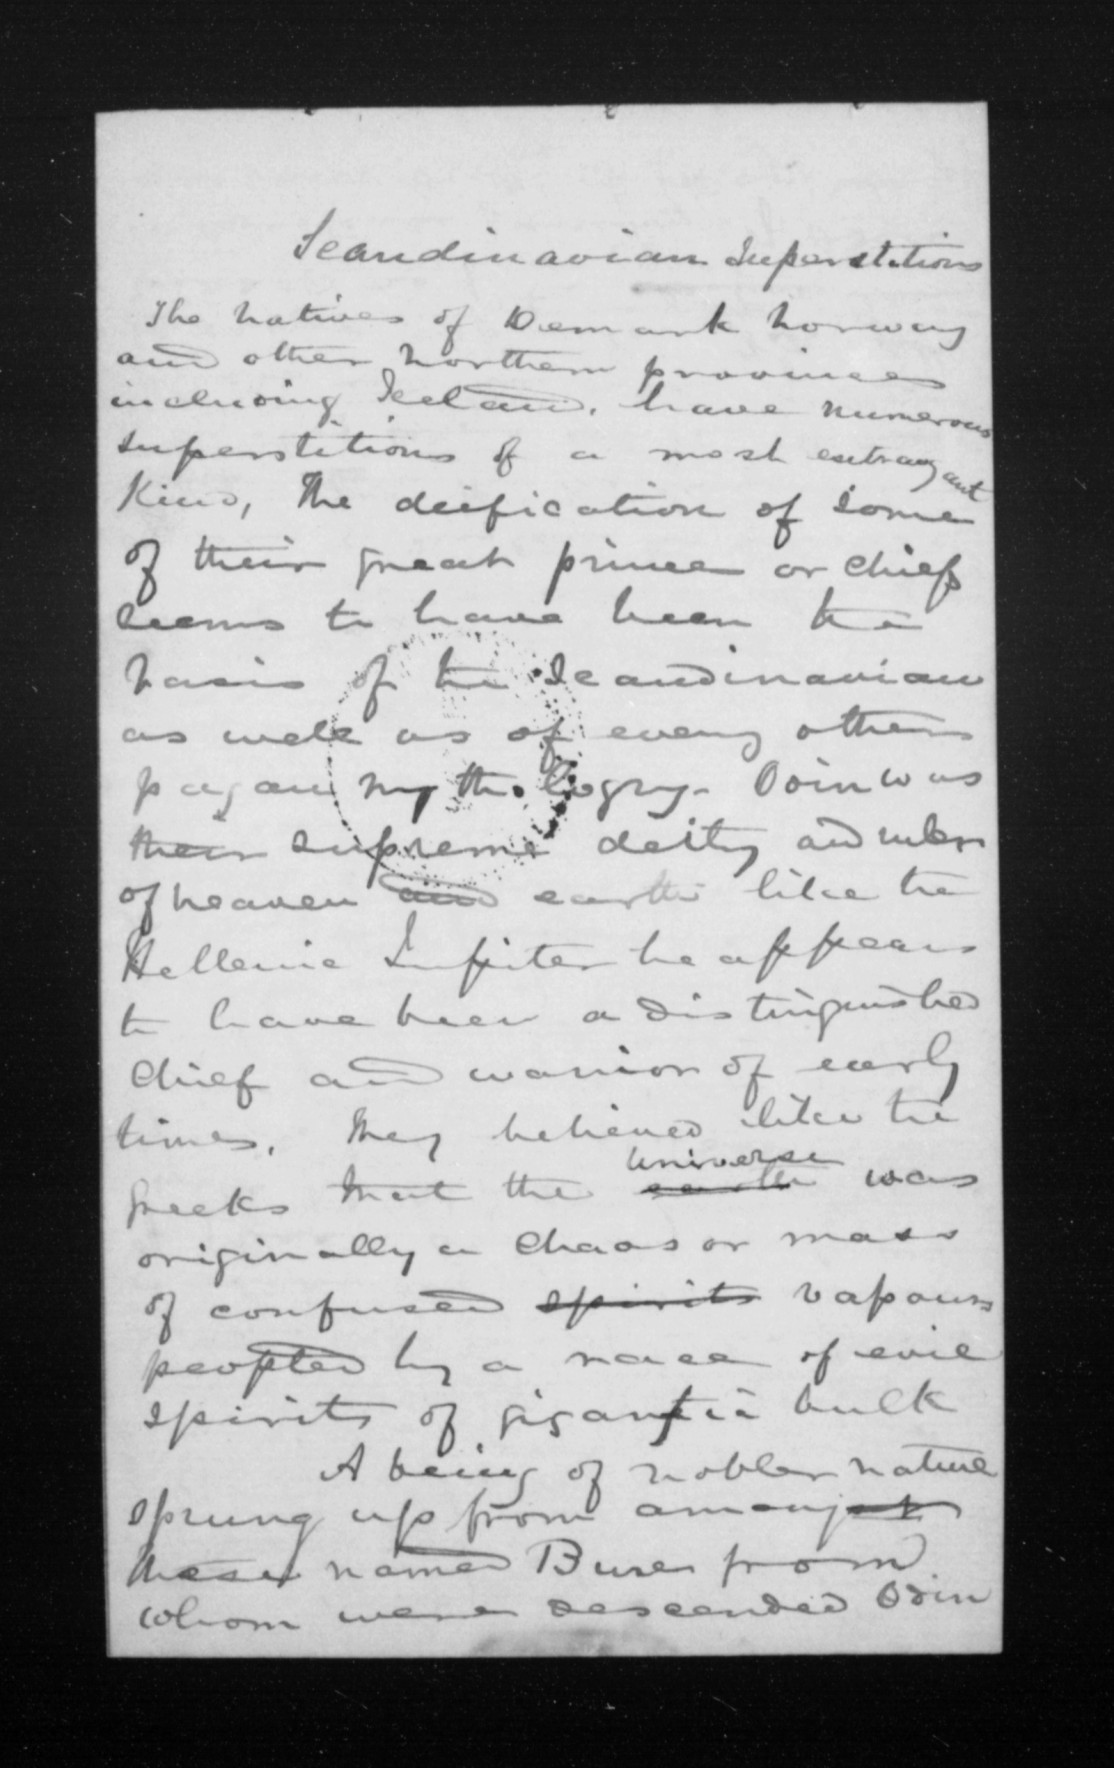 Scandinavian Superstitions
The natives of Demark Norway
and other northern provinces
including Iceland. have numerous
superstitions of a most extragant
Kind, The deification of some
of their great prince or chiefs
seems to have been the
basis of the Scandinavian
as well as of every other
pagan mythology. Odin was
their supreme deity and ruler
of heaven and earth like the
Hellenic Jupiter he appears
to have been a distinguished
chief and warrior of early
times. They believed like the
universe
greeks that the earth was
originally a chaos or mass
of confused spirits vapours
peopled by a race of evil
spirits of gigantic bulk
A being of nobler nature
sprung up from amongst
these named Bure from
whom were descended Odin